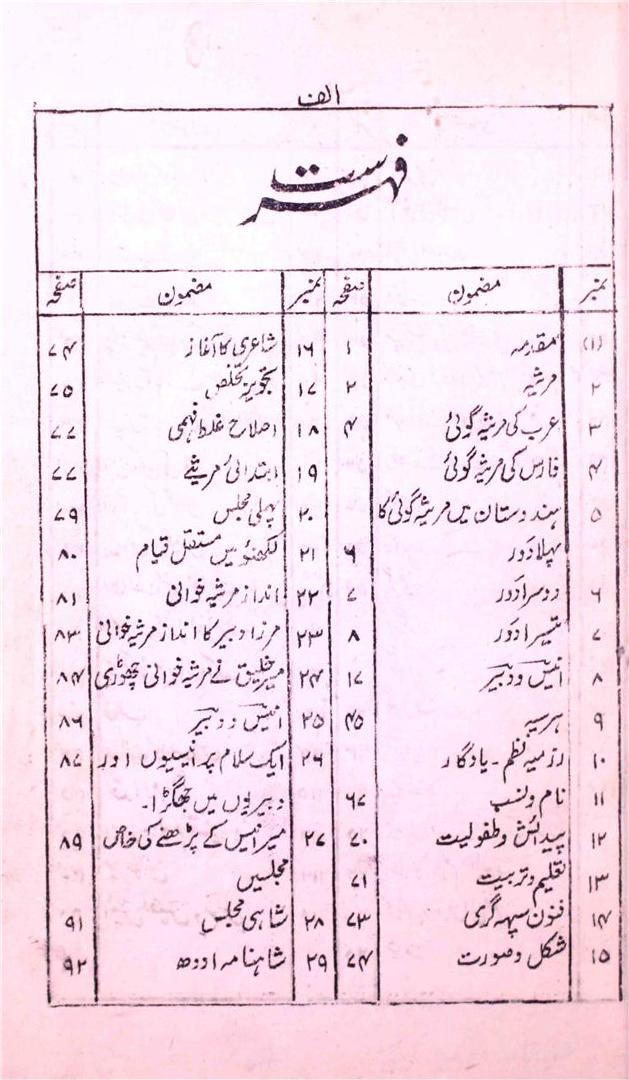 الف
فہرست
نمبر مضمون صفحہ نمبر مضمون صفحہ
(۱) مقدمہ ۱
۲ مرثیہ ۲
۳ عرب کی مرثیہ گوئی ۴
۴ فارس کی مرثیہ گوئی
۵ ہندوستان میں مرثیہ گوئی کا
پہلا دور ۶
۶ دوسرا دور ۷
۷ تیسرا دور ۸
۸ انیس و دبیر ۱۷
۹ ہریہ ۴۵
۱۰ رزمیہ نظم ۔ یادگار
۱۱ نام و نسب ۶۷
۱۲ پیدائش و طفولیت ۷۰
۱۳ تعلیم و تربیت ۷۱
۱۴ فنون سپہ گری ۷۳
۱۵ شکل و صورت ۷۴
۱۶ شاعری کا آغاز ۷۴
۱۷ تجویز تخلص ۷۵
۱۸ اصلاح غلط فہمی ۷۷
۱۹ ابتدائی مرثیے ۷۷
۲۰ پہلی مجلس ۷۹
۲۱ لکھنؤ میں مستقل قیام ۸۰
۲۲ انداز مرثیہ خوانی ۸۱
۲۳ مرزا دبیر کا انداز مرثیہ خوانی ۸۳
۲۴ میر خلیق نے مرثیہ خوانی چھوڑی ۸۴
۲۵ انیس و دبیر ۸۶
۲۶ ایک سلام پر انیسیوں اور ۸۷
دبیریوں میں جھگڑا۔
۲۷ میر انیس کے پڑھنے کی خاص ۸۹
مجلسیں
۲۸ شاہی مجلس ۹۱
۲۹ شاہنامہ اودھ ۹۲